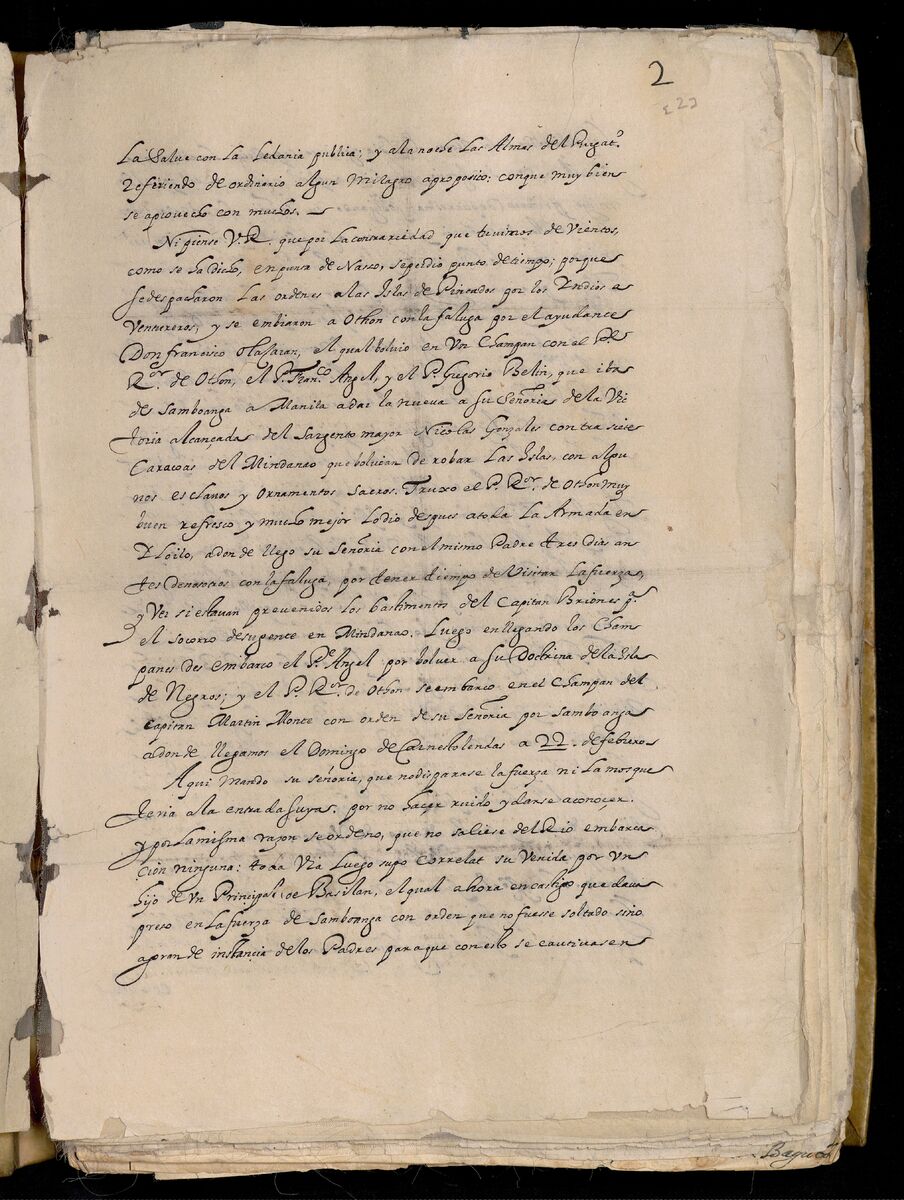 2
223
La Salue con La Ledania publica; y a la noche Las Almas del Purgat.º
Refiriendo de ordinario algun milagro aproposito; con que muy bien
se aprouecho con muchos.
Ni piense V. R. que por La contrariedad que tuvimos de Vientos,
como se ha dicho, en punta de Nasso, se perdio punto de tiempo; porque
se despacharon Las ordenes a las Islas de Pintados por los Indios a
Ventureros, y se embiaron a Othon con la faluga por el ayudante
Don Francisco Olassaran, el qual boluio en Un Champan con el Pe
Ror. de Othon, el P. Franco Angel, y el P. Gregorio Belin, que iba
de Samboanga a Manila a dar la nueva a su Señoria de la Vic
toria alcançada del Sargento mayor Nicolas Gonzales contra siete
Caracoas del Mindanao que boluian de robar Las Islas, con algu
nos esclauos y Ornamentos Sacros. Truxo el P. Ror. de Othon muy
buen refresco y mucho mejor Lo dio despues a toda La Armada en
Yloilo, adonde llego su Señoria con el mismo Padre tres dias an
tes de nosotros con la faluga, por tener tiempo de Visitar La fuerza,
y Ver si estauan preuenidos los bastimentos del Capitan Briones pa.
el socorro de su gente en Mindanao. Luego en llegando los Cham
panes desembarco el Pe. Angel por boluer a su Doctrina de la Isla
de Negros; y el P. Ror. de Othon se embarco en el Champan del
Capitan Martin Monte con orden de su Señoria por Samboanga
adonde llegamos el Domingo de Carnestolendas a 22. de febrero
Aqui mando su señoria, que no disparase la fuerza ni La mosque
teria a la entrada suya. por no haçer ruido, y darse a conocer.
y por La misma razon se ordeno, que no saliese del Rio embarca
cion ninguna: toda Via Luego supo Correlat su Venida por Un
hijo de Un Principal de Basilan, el qual ahora en castigo quedaua
preso en La fuerza de Samboanga con orden que no fuesse soltado sino
a grande instancia de los Padres para que con esto se cautivasen